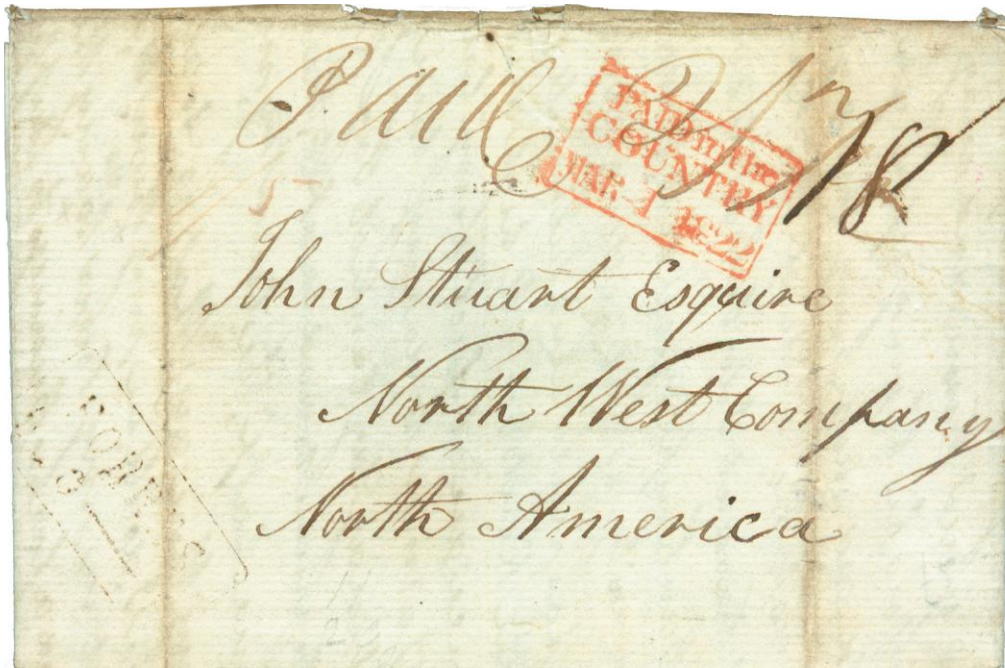 Paid
PAID in the
COUNTRY
MAR 1 1822
John Stuart Esquire
North West Company
North America